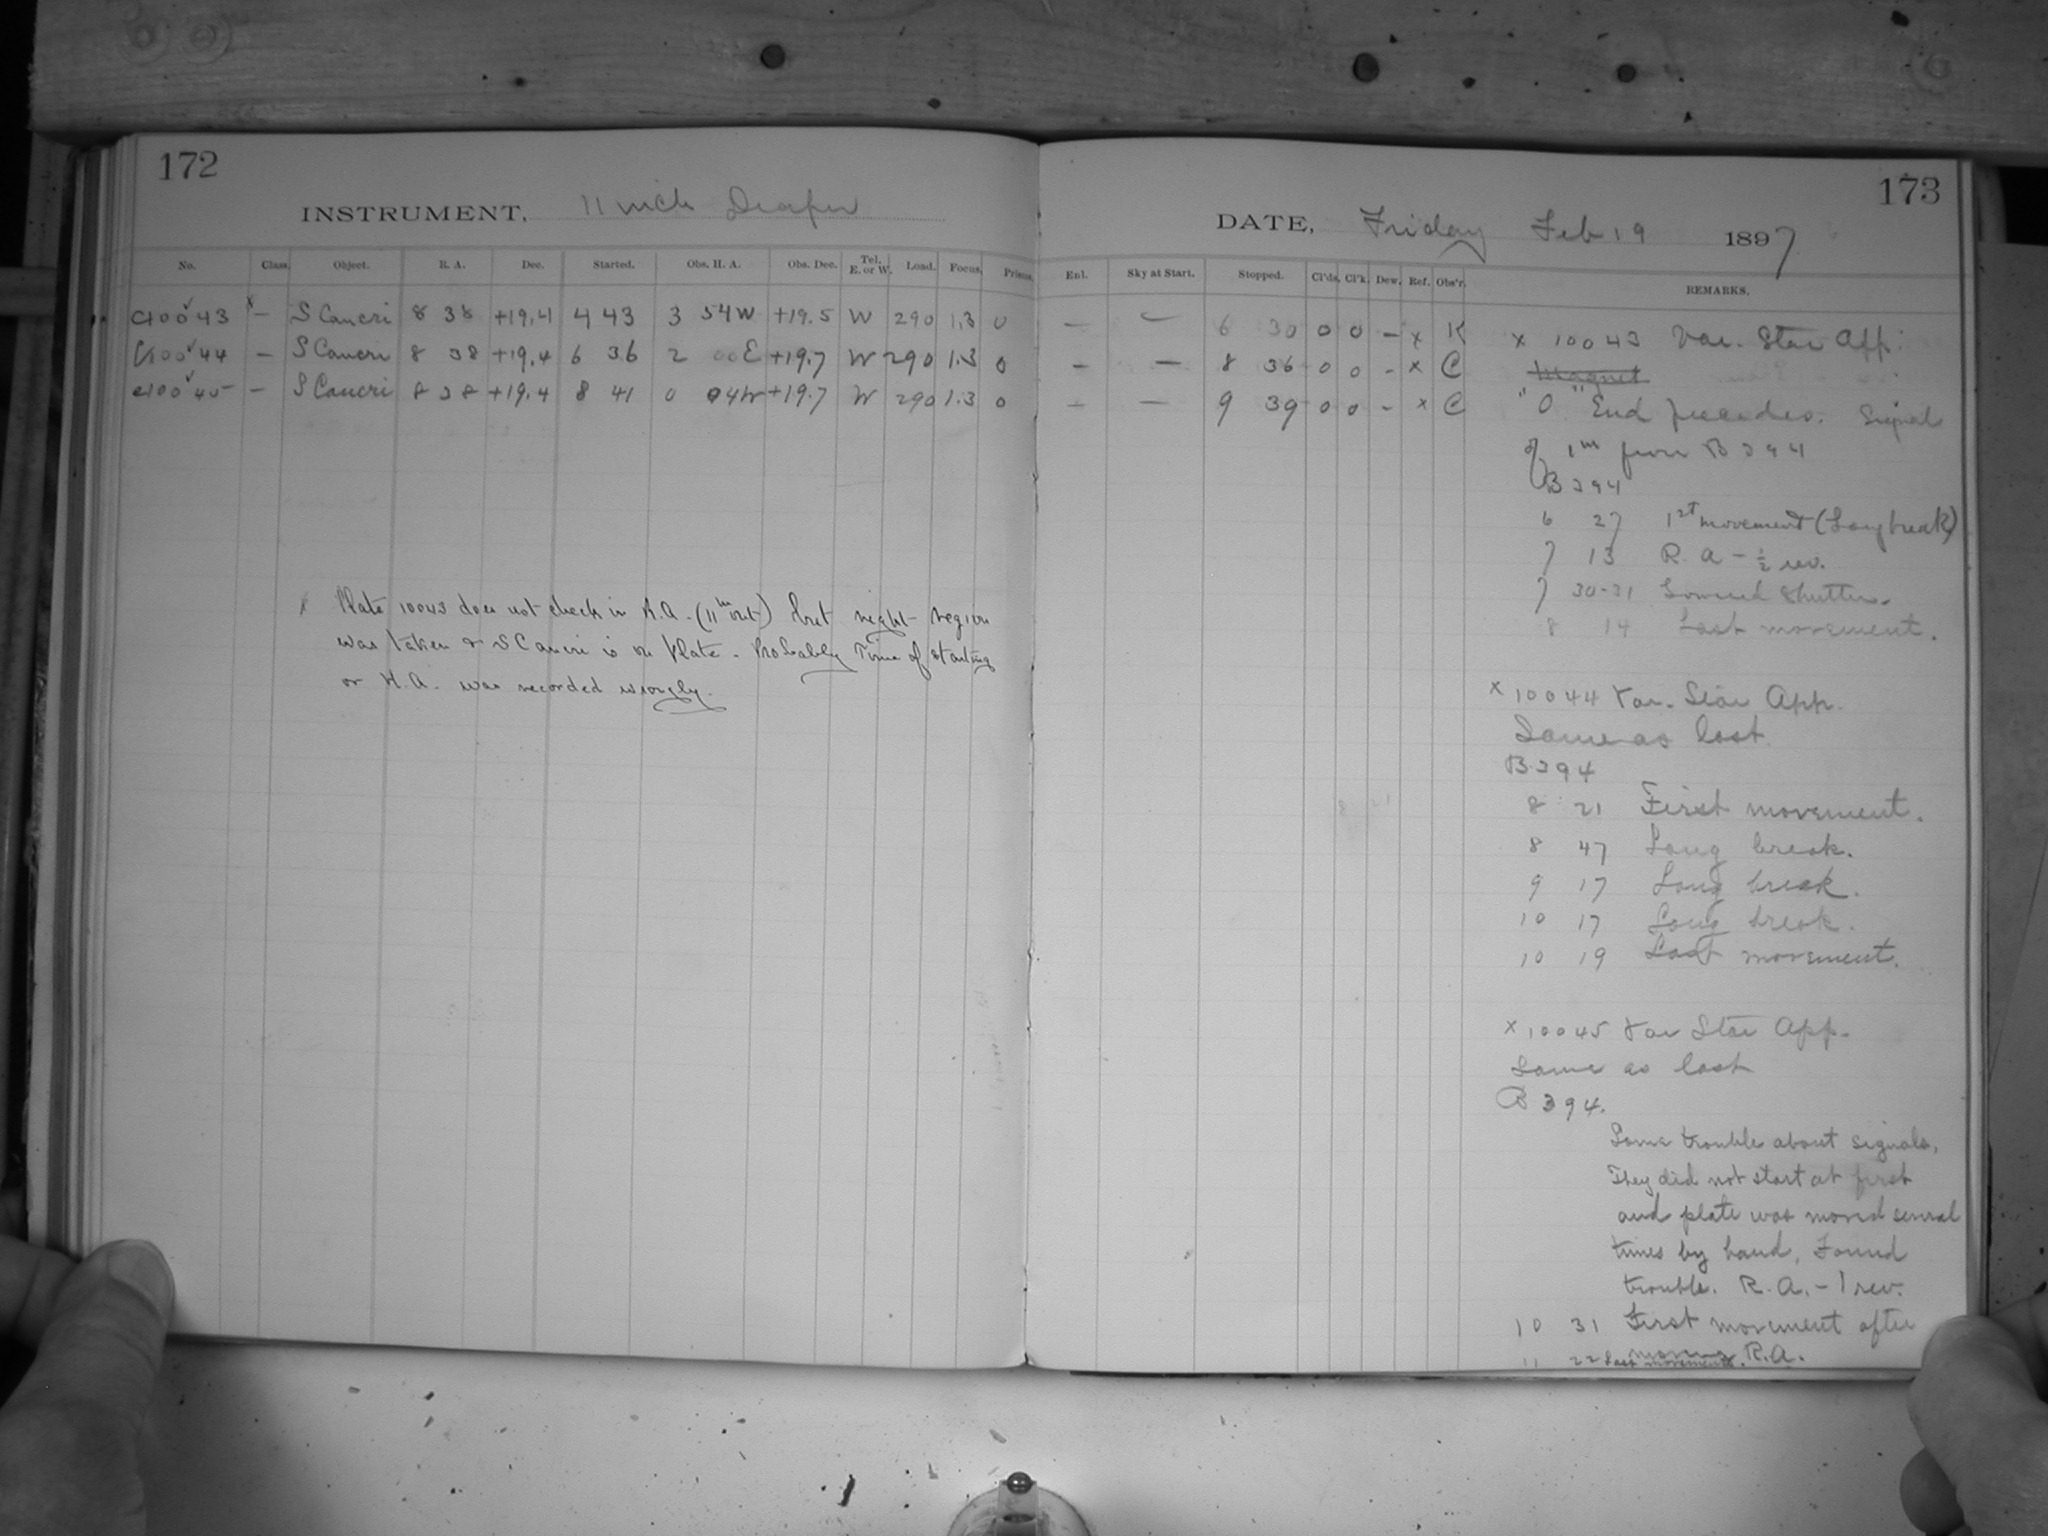 172
INSTRUMENT, 11 inch Draper
No. Class. Object. R. A. Dec. Started. Obs. H. A. Obs. Dec. Tel. E. or W. Load. Focus. Prisms.
c10043 x – S Cancri 8 38 +19.4 4 43 3 54W +19.5 W 290 1.3 0
c10044 – S Cancri 8 38 +19.4 6 36 2 00E +19.7 W 290 1.3 0
c10045 – S Cancri 8 38 +19.4 8 41 0 04W +19.7 W 290 1.3 0
x Plate 10043 does not check in R.A. (11m out) but right region
was taken & S Cancri is on Plate. Probably Time of starting
or H.A. was recorded wrongly.
173
DATE, Friday Feb 19 1897
Enl. Sky at Start. Stopped. Cl'ds. Cl'k. Dew. Ref. Obs'r. REMARKS.
– – 6 30 0 0 – x K
– – 8 36 0 0 – x C
– – 9 39 0 0 – x C
x 10043 Var. Star App.
Magnet
"O" End precedes. Signal
of 1m from B 394
B 394
6 27 1st movement (Long break)
7 13 R.A – ½ rev.
7 30-31 Lowered Shutter.
8 14 Last movement.
x 10044 Var. Star App.
Same as last
B 394
8 21 First movement.
8 47 Long break.
9 17 Long break.
10 17 Long break.
10 19 Last movement.
x 10045 Var Star App.
Same as last
B 394.
Some trouble about signals,
They did not start at first
and plate was moved several
times by hand, Found
trouble. R.A. – 1 rev.
10 31 First movement after
moving R.A.
11 22 Last movement.